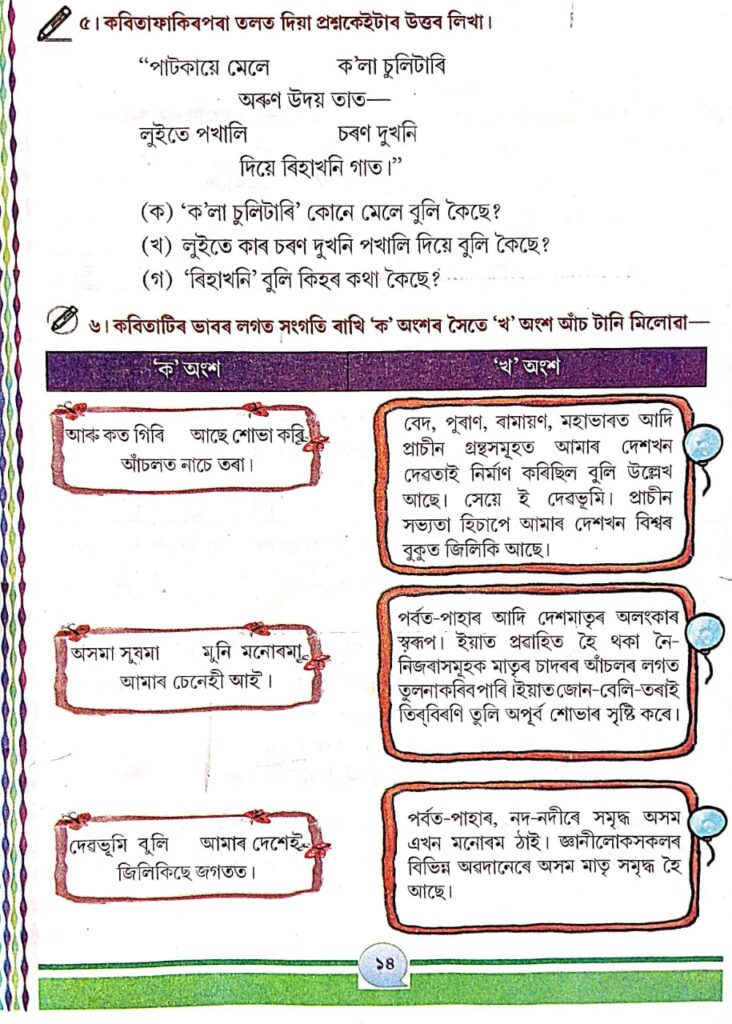 ৫। কবিতাফাকিৰপৰা তলত দিয়া প্ৰশ্নকেইটাৰ উত্তৰ লিখা।
“পাটকায়ে মেলে ক’লা চুলিটাৰি
অৰুণ উদয় তাত—
লুইতে পখালি চৰণ দুখনি
দিয়ে ৰিহাখনি গাত।”
(ক) ‘ক’লা চুলিটাৰি’ কোনে মেলে বুলি কৈছে?
(খ) লুইতে কাৰ চৰণ দুখনি পখালি দিয়ে বুলি কৈছে?
(গ) ‘ৰিহাখনি’ বুলি কিহৰ কথা কৈছে?
৬। কবিতাটিৰ ভাবৰ লগত সংগতি ৰাখি ‘ক’ অংশৰ সৈতে ‘খ’ অংশ আঁচ টানি মিলোৱা—
‘ক’ অংশ ‘খ’ অংশ
আৰু কত গিৰি আছে শোভা কৰি
আঁচলত নাচে তৰা।
বেদ, পুৰাণ, ৰামায়ণ, মহাভাৰত আদি
প্ৰাচীন গ্ৰন্থসমূহত আমাৰ দেশখন
দেৱতাই নিৰ্মাণ কৰিছিল বুলি উল্লেখ
আছে। সেয়ে ই দেৱভূমি। প্ৰাচীন
সভ্যতা হিচাপে আমাৰ দেশখন বিশ্বৰ
বুকুত জিলিকি আছে।
অসমা সুষমা মুনি মনোৰমা
আমাৰ চেনেহী আই।
পৰ্বত-পাহাৰ আদি দেশমাতৃৰ অলংকাৰ
স্বৰূপ। ইয়াত প্ৰৱাহিত হৈ থকা নৈ-
নিজৰাসমূহক মাতৃৰ চাদৰৰ আঁচলৰ লগত
তুলনা কৰিব পাৰি। ইয়াত জোন-বেলি-তৰাই
তিৰ্‌বিৰণি তুলি অপূৰ্ব শোভাৰ সৃষ্টি কৰে।
দেৱভূমি বুলি আমাৰ দেশেই
জিলিকিছে জগতত।
পৰ্বত-পাহাৰ, নদ-নদীৰে সমৃদ্ধ অসম
এখন মনোৰম ঠাই। জ্ঞানীলোকসকলৰ
বিভিন্ন অৱদানেৰে অসম মাতৃ সমৃদ্ধ হৈ
আছে।
১৪